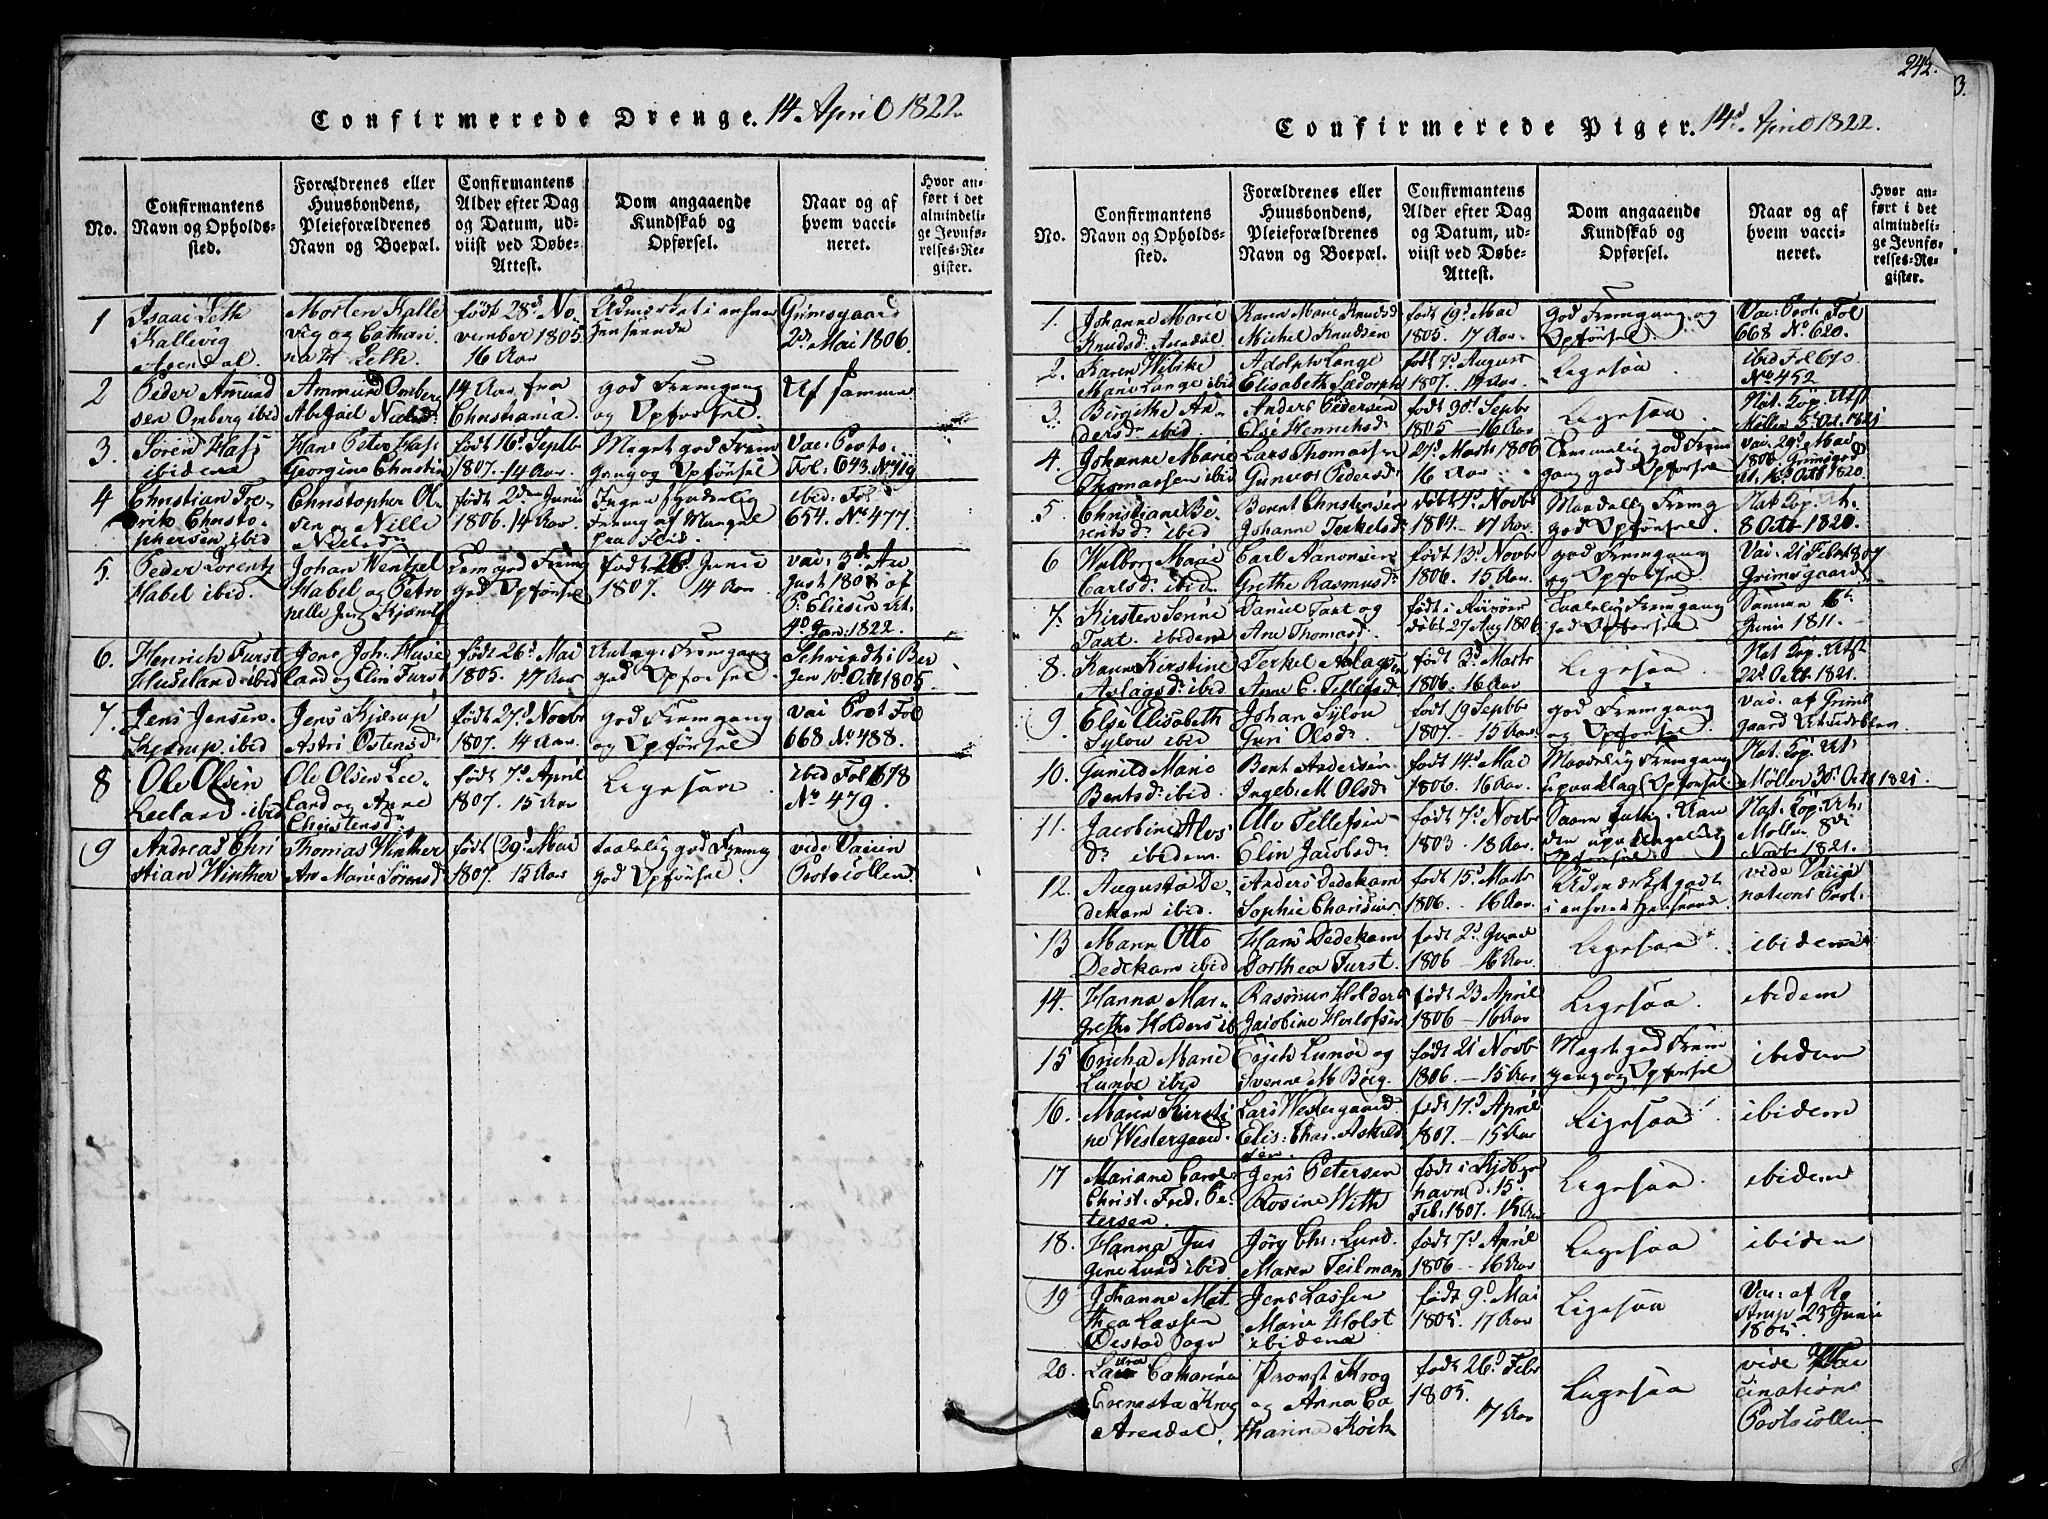 242.
3.
Confirmerede Drenge. 14 April 1822.
No.
Confirmantens Navn og Opholdssted.
Forældrenes eller Huusbondens, Pleieforældrenes Navn og Boepæl.
Confirmantens Alder efter Dag og Datum, udviist ved Døbe-Attest.
Dom angaaende Kundskab og Opførsel.
Naar og af hvem vaccineret.
Hvor anført i det almindelige Jevnførelses-Register.
1
Isaac Leth
Kallevig
Arendal
Morten Kalle
vig og Cathari
na M. Lethe
født 28d No
vember 1805
16 Aar
Udmerket i enhver
Henseende
Grimsgaard
2d Mai 1806.
2
Peder Amund
sen Omberg ibid
Ammund Omberg
Abigail Nielsd.
14 Aar fra
Christiania.
god Fremgang
og Opførsel.
Af samme
3.
Søren Hass
ibidem
Hans Peter Hass
Georgine Christin
født 16d Septb
1807. 14 Aar.
Meget god Frem
gang og Opførsel
Vac: Proto:
Fol: 643. No 719
4
Christian Fre
drik Christo
phersen ibid
Christopher Ol
sen og Nille
Nielsdr
født 2den Junii
1806. 14 Aar.
Ingen synderlig
Fremg af Mangel
paa Flid.
ibid: Fol
654. No 477.
5.
Peder Lorentz
Habel ibid.
Johan Wentzel
Habel og Petro
nelle
Tem god Frem
god Opførsel
født 26d Junii
1807. 14 Aar
vac: 3d Au
gust 1808 af
P: Eliesen At.
9d Jan: 1822.
6.
Henrich Furst
Huseland ibid
Jens Joh: Huse
land og Elin Furst
født 26d Mai
1805. 17 Aar
Antagel Fremgang
god Opførsel.
Schvindt i Ber
gen 10d Octb 1805.
7.
Jens Jensen
Kjerup ibid
Jens Kjærup
Astri Ostensd
født 27d Novbr
1807. 14 Aar.
god Fremgang
og Opførsel
vac Prot Fol
668 No 488.
8
Ole Olsen
Leeland ibid
Ole Olsen Lee
land og Anne
Christensdr
født 7d April
1807. 15 Aar
Ligesaa
ibid Fol 678
No 479.
9
Andreas Chri
stian Winther
Thomas Winther
An Marie Sørensd
født 29d Mai
1807. 15 Aar
taalelig god Fremg
god Opførsel.
vide Vaccin
Protocollen.
Confirmerede Piger. 14d April 1822.
No.
Confirmantens Navn og Opholdssted.
Forældrenes eller Huusbondens, Pleieforældrenes Navn og Boepæl.
Confirmantens Alder efter Dag og Datum, udviist ved Døbe-Attest.
Dom angaaende Kundskab og Opførsel.
Naar og af hvem vaccineret.
Hvor anført i det almindelige Jevnførelses-Register.
1.
Johanne Marie
Knudsd. Arendal
Karen Marie Knudsd
Michel Knudsen
født 19d Mai
1805. 17 Aar.
god Fremgang og
Opførsel.
Vac: Prot: Fol
668 No 620.
2.
Karen Wibike
Marie Lange ibid
Adolph Lange
Elisabeth
født 7d August
1807. 14 Aar.
Ligesaa
ibid Fol 670
No 452
3.
Birgithe An
dersd. ibid.
Anders Pedersen
Else Henrichsd
født 30d Septbr
1805 — 16 Aar
Ligesaa.
Nat. Kop. Atst
Møller 5d Oct. 1821
4.
Johanne Marie
Thomassen ibid
Lars Thomassen
Gunvor Pedersd
27d Marts 1806
16 Aar.
Temmelig god Frem
gang god Opførsel
vac. 29d Mai
1806 Grimsgrd
At. 16d Oct 1820.
5
Christiane Be
rentsd. ibid
Berent Christensen
Johanne Terkelsd
døbt 4d Novbr
1804. — 17 Aar
Maadelig Fremg
god Opførsel
Nat. Kop. At.
8 Octb 1820.
6
Walborg Marie
Carlsd. ibid
Carl Aanonsen
Grethe Rasmusd.
født 13d Novbr
1806. 15 Aar.
god Fremgang
og Opførsel
Vac: 21 Febr 1807
Grimsgaard
7.
Kirsten Senne
Taxt. ibidem
Daniel Taxt og
Ane Thomasd.
født i
døbt 27 Aug 1806
Taalelig Fremgang
god Opførsel
Samme 16de
Junii 1811.
8.
Karen Kirstine
Aslagsd. ibid
Terkel Aslagsen
Anne C. Tellefsd
født 3d Marts
1806. 16 Aar.
Ligesaa
Nat. Kop. Atst
22d Octb. 1821.
9.
Else Elisabeth
Sylow ibid
Johan Sylow
Guri Olsdr
født 19 Septbr
1807. — 15 Aar.
god Fremgang
og Opførsel
vac. af Grims
gaard
10.
Gunild Marie
Bentsd. ibid.
Bent Andersen
Ingeb. M Olsd
født 14d Mai
1806. 16 Aar.
Maadelig Fremgang
upaaklag Opførsel
Nat. Kop. At:
Møller 30d Octb 1821.
11.
Jacobine Alvs
Dr ibidem.
Alv Tellefsen
Elin Jacobsdr
født 7d Novbr
1803. 18 Aar.
Opførsel
Nat. Kop. At:
Møller 8de
Novb 1821.
12.
Augusta De
dekam ibid.
Anders Dedekam
Sophie Charisius
født 15d Marts
1806. — 16 Aar
Udmærket godt
i enhver Henseende
vide Vacci
nations Prot.
13
Mann Otto
Dedekam ibid
Hans Dedekam
Dorthea Furst.
født 2d Junii
1806 — 16 Aar.
Ligesaa
ibidem
14.
Hanna Mar
grethe Holders ib
Rasmus Holders
Jacobine Herlofsen
født 23 April
1806 — 16 Aar
Ligesaa.
ibidem
15
Ericha Marie
Lunøe ibid
Erich Lunøe og
Svenne M Borg.
født 21 Novb
1806. — 15 Aar
Meget god Frem
gang og Opførsel
ibidem
16.
Maren Kirsti
ne Westergaard.
Lars Westergaard.
Elis: Char. Askild
sen.
født 17d April
1807. — 15 Aar
Ligesaa
ibidem
17
Mariane Carol
Christ. Fred. Pe
tersen.
Jens Petersen
Rosine With
født i Kjøben
havn d. 15d
Feb. 1807. 15 Aar
Ligesaa.
ibidem
18.
Hanna Jus
gine Lund ibid
Jørg Chr: Lund.
Maren Teilman
født 7d April
1806 — 16 Aar
Ligesaa
ibidem
19
Johanne Mat
thea Lassen
Oiestad Sogn
Jens Lassen
Marie Holst
ibidem
født 9d Mai
1805. 17 Aar
Ligesaa
Vac: af Ro
strup 23 Junii
1805.
20.
Laura Catharina
Ernesta Krog
Arendal.
Provst Krog
og Anna Ca
tharina Koch
født 26d Febr
1805.
17 Aar
Ligesaa
vide Vac
cinations
Protocollen